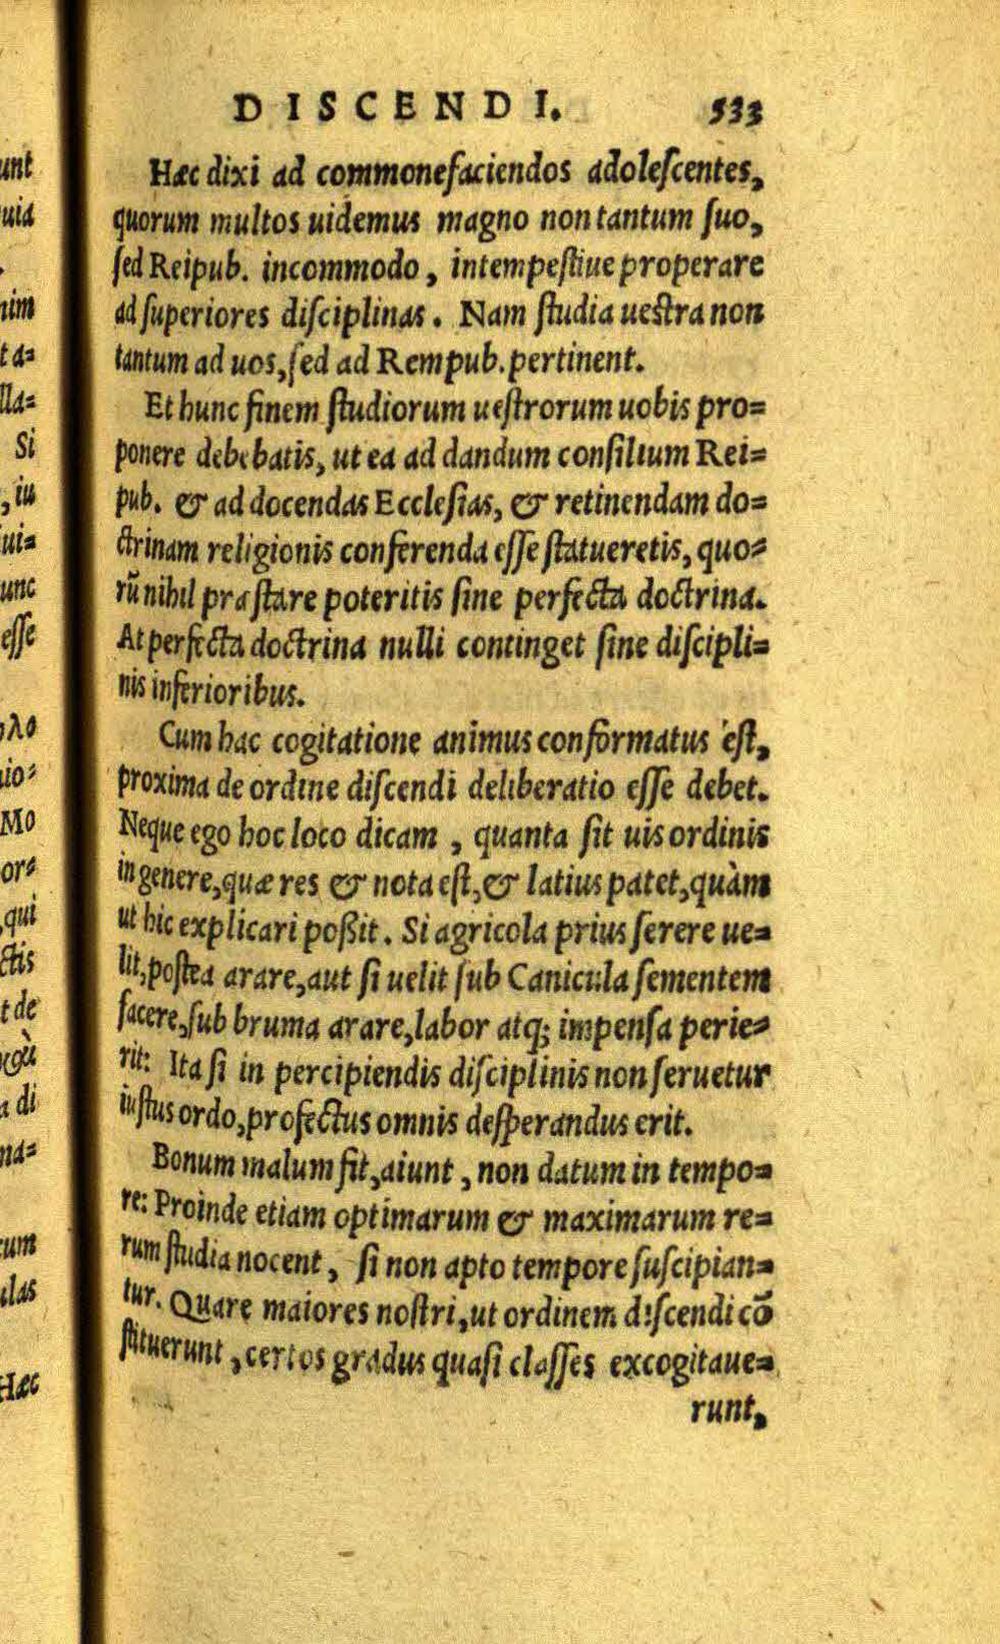 DISCENDI. 533
Hæc dixi ad commonefaciendos adoleſcentes,
quorum multos uidemus magno non tantum ſuo,
ſed Reipub. incommodo, intempeſtiue properare
ad ſuperiores diſciplinas. Nam ſtudia ueſtra non
tantum ad uos, ſed ad Rempub. pertinent.
Et hunc finem ſtudiorum ueſtrorum uobis pro=
ponere debebatis, ut ea ad dandum conſilium Rei=
pub. & ad docendas Eccleſias, & retinendam do=
ctrinam religionis conferenda eſſe ſtatueretis, quo=
rū nihil præſtare poteritis ſine perfecta doctrina.
At perfecta doctrina nulli continget ſine diſcipli=
nis inferioribus.
Cum hac cogitatione animus conformatus eſt,
proxima de ordine diſcendi deliberatio eſſe debet.
Neque ego hoc loco dicam, quanta ſit uis ordinis
in genere, quæ res & nota eſt, & latius patet, quàm
ut hic explicari poßit. Si agricola prius ſerere ue=
lit, poſtea arare, aut ſi uelit ſub Canicula ſementem
facere, ſub bruma arare, labor atq; impenſa perie=
rit: Ita ſi in percipiendis diſciplinis non ſeruetur
iuſtus ordo, profectus omnis deſperandus erit.
Bonum malum fit, aiunt, non datum in tempo=
re: Proinde etiam optimarum & maximarum re=
rum ſtudia nocent, ſi non apto tempore ſuſcipian=
tur. Quare maiores noſtri, ut ordinem diſcendi cō
ſtituerunt, certos gradus quaſi claſſes excogitaue=
runt,
unt
uia
nim
ta=
lla=
Si
, iu
ui=
unc
eſſe
λο
io=
Mo
or=
, qui
ctis
t de
a di
na=
cum
ulas
Hæc